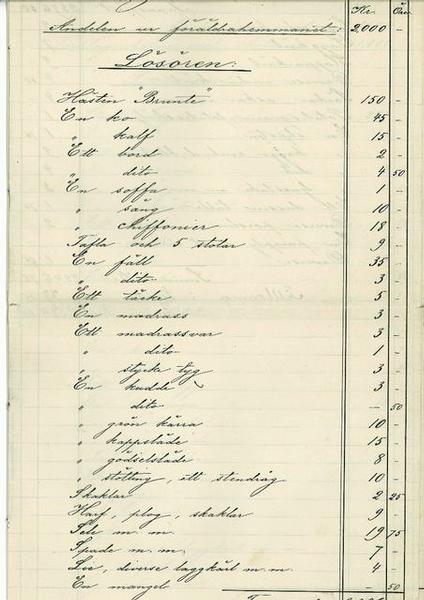 Kr. Öre
Andelen ur föräldrahemmanet: 2,000 -
Lösören:
Hästen "Brunte" 150 -
En ko 45 -
" kalf 15 -
Ett bord 2 -
" dito 4 50
En soffa 1 -
" säng 10 -
" chiffonier 18 -
Tafla och 5 stolar 9 -
En fäll 35 -
" dito 3 -
Ett täcke 5 -
En madrass 3 -
Ett madrassvar 3 -
" dito 1 -
" stycke tyg 3 -
En kudde 3 -
" dito - 50
" grön kärra 10 -
" kappsläde 15 -
" gödselsläde 8 -
" stötting, ett stendrag 10 -
Skaklar 2 25
Harf, plog, skaklar 9 -
Sele m. m. 19 75
Spade m. m. 7 -
Lie, diverse laggkärl m. m. 4 -
En mangel - 50